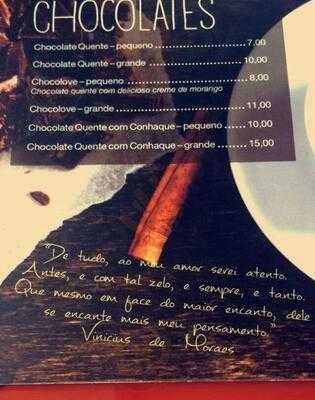 CHOCOLATES
Chocolate Quente – pequeno ........................... 7,00
Chocolate Quente – grande ........................... 10,00
Chocolove – pequeno ................................... 8,00
Chocolate quente com delicioso creme de morango
Chocolove – grande ..................................... 11,00
Chocolate Quente com Conhaque – pequeno ...... 10,00
Chocolate Quente com Conhaque – grande ........ 15,00
"De tudo, ao meu amor serei atento.
Antes, e com tal zelo, e sempre, e tanto.
Que mesmo em face do maior encanto, dele
se encante mais meu pensamento."
Vinicius de Moraes